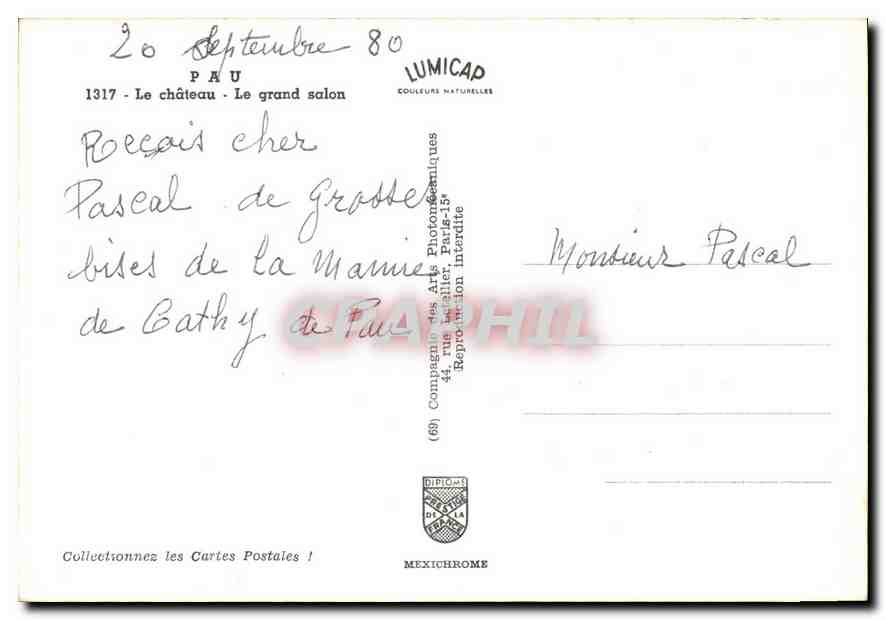 20 Septembre 80
PAU
1317 - Le château - Le grand salon
LUMICAP
COULEURS NATURELLES
Reçois cher
Pascal de Grosses
bises de la Mamie
de Cathy de Pau
Monsieur Pascal
(69) Compagnie des Arts Photomécaniques
44, rue Letellier, Paris-15e
Reproduction interdite
CPAPHIL
DIPLOME
PRESTIGE
DE LA
FRANCE
Collectionnez les Cartes Postales !
MEXICHROME